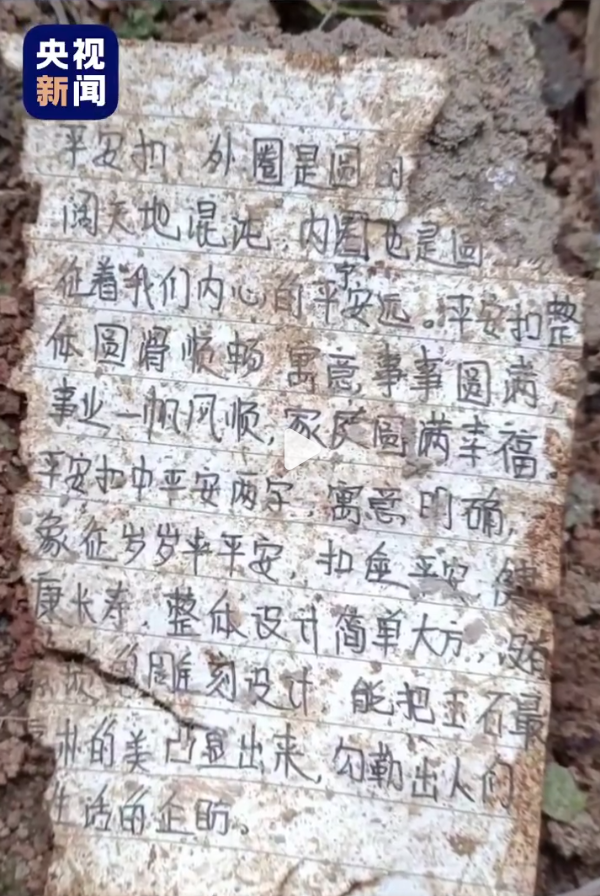 央视
新闻
平安扣，外圈是圆的
阔天地混沌，内圈也是圆
征着我们内心的平安宁远。平安扣整
体圆滑顺畅 寓意事事圆满，
事业一帆风顺，家庭圆满幸福。
平安扣中平安两字，寓意明确，
象征岁岁年年平安，扣住平安，健
康长寿。整体设计简单大方，没有
雕刻设计 能把玉石最
朴的美凸显出来，勾勒出人们
生活的企盼。